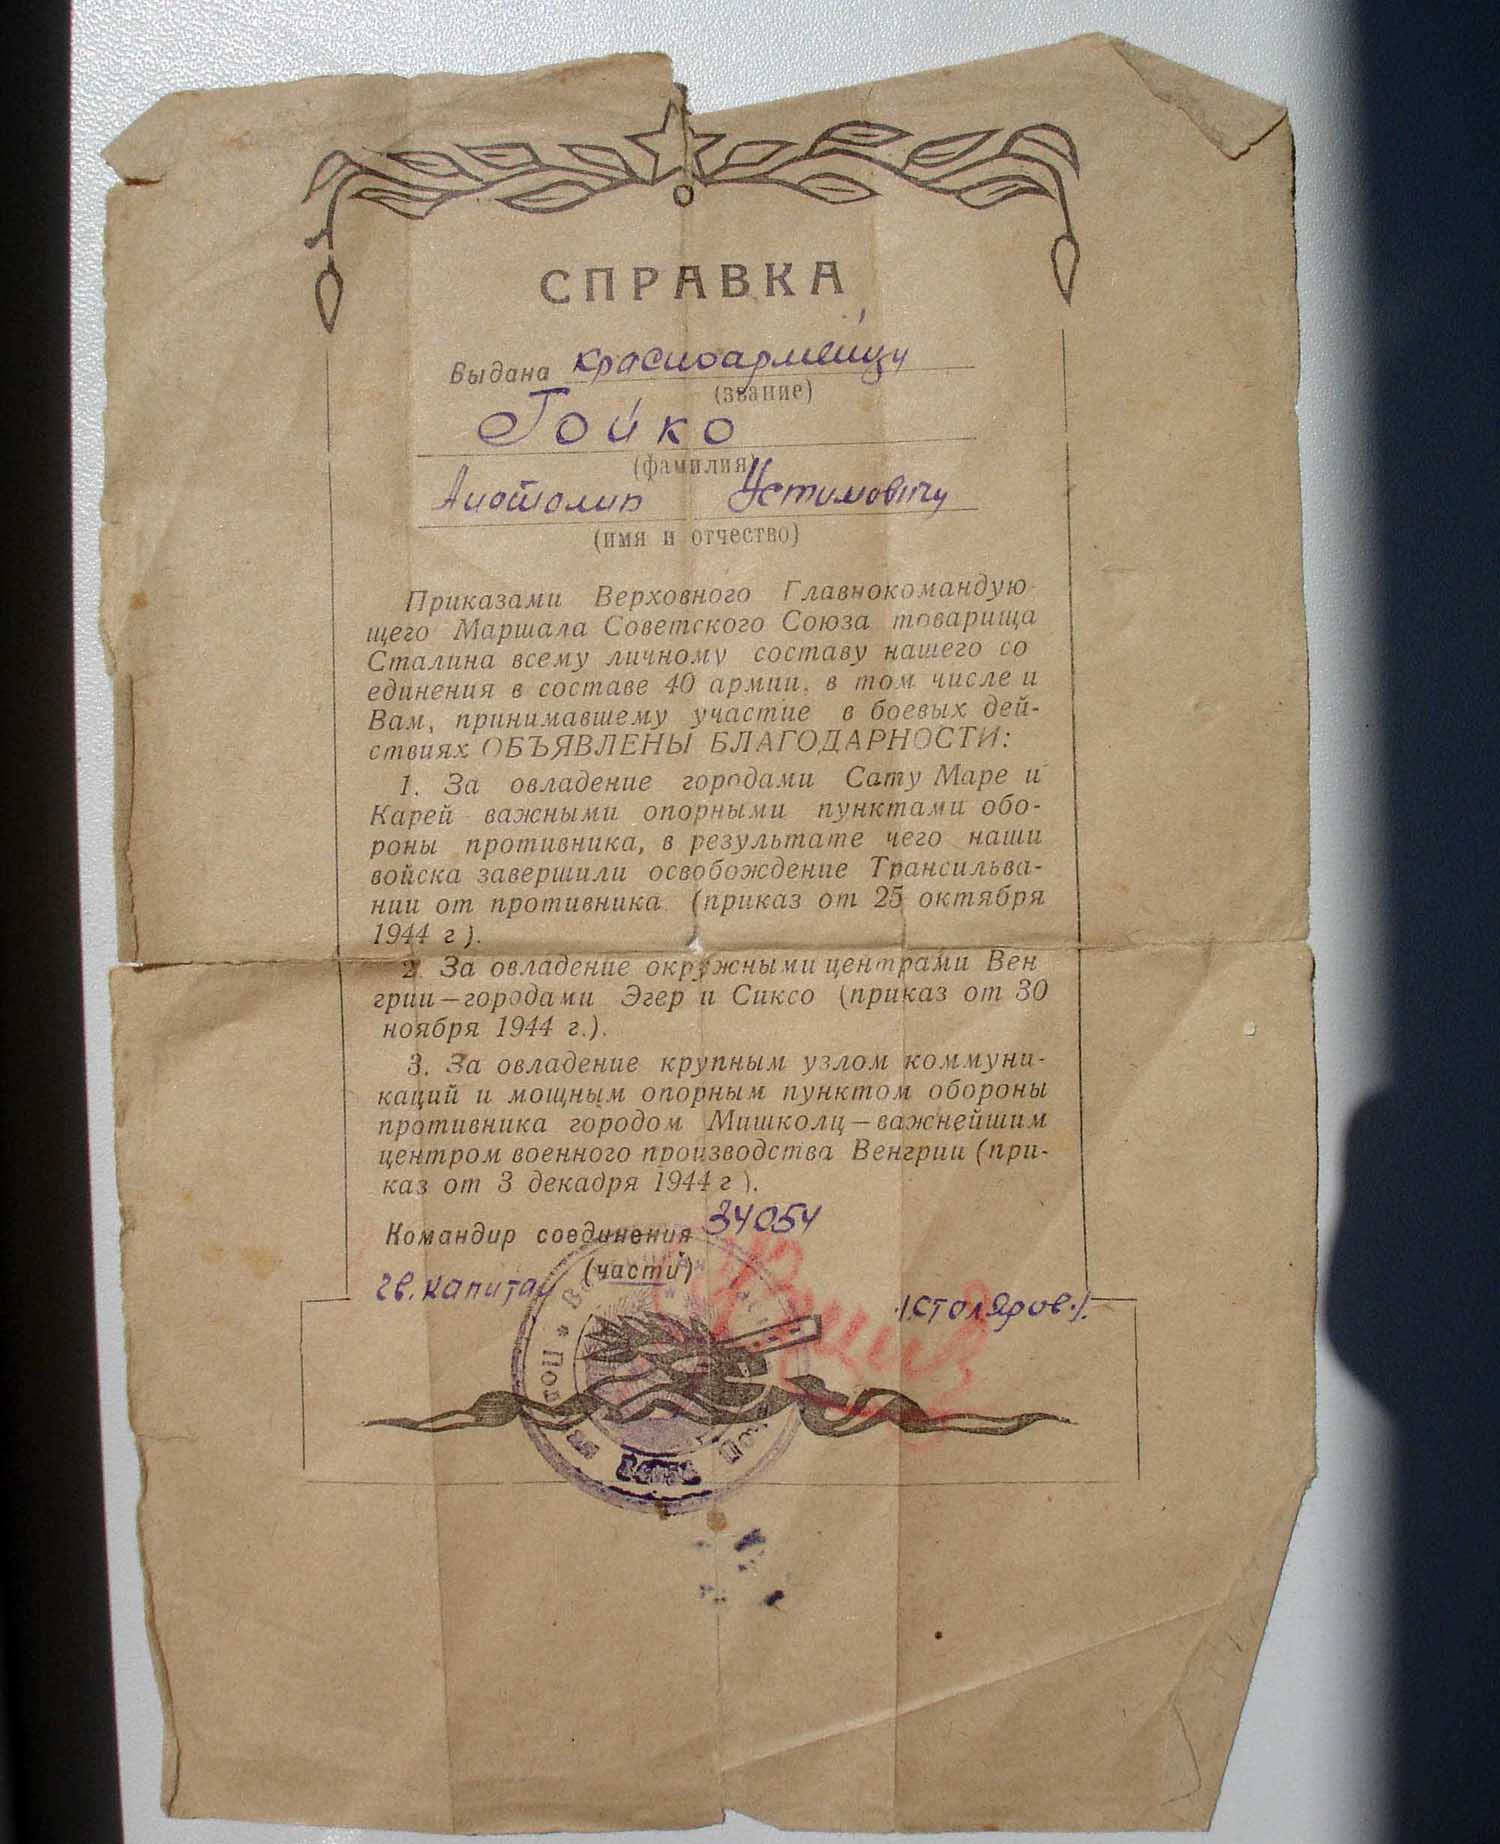 СПРАВКА
Выдана красноармейцу
(звание)
Гойко
(фамилия)
Анатолию Устимовичу
(имя и отчество)
Приказами Верховного Главнокомандую-
щего Маршала Советского Союза товарища
Сталина всему личному составу нашего со
единения в составе 40 армии, в том числе и
Вам, принимавшему участие в боевых дей-
ствиях ОБЪЯВЛЕНЫ БЛАГОДАРНОСТИ:
1. За овладение городами Сату Маре и
Карей важными опорными пунктами обо-
роны противника, в результате чего наши
войска завершили освобождение Трансильва-
нии от противника. (приказ от 25 октября
1944 г).
2. За овладение окружными центрами Вен
грии—городами Эгер и Сиксо (приказ от 30
ноября 1944 г.).
3. За овладение крупным узлом коммуни-
каций и мощным опорным пунктом обороны
противника городом Мишколц—важнейшим
центром военного производства Венгрии (при-
каз от 3 декадря 1944 г).
Командир соединения 34054
(части)
гв. капитан /Столяров./